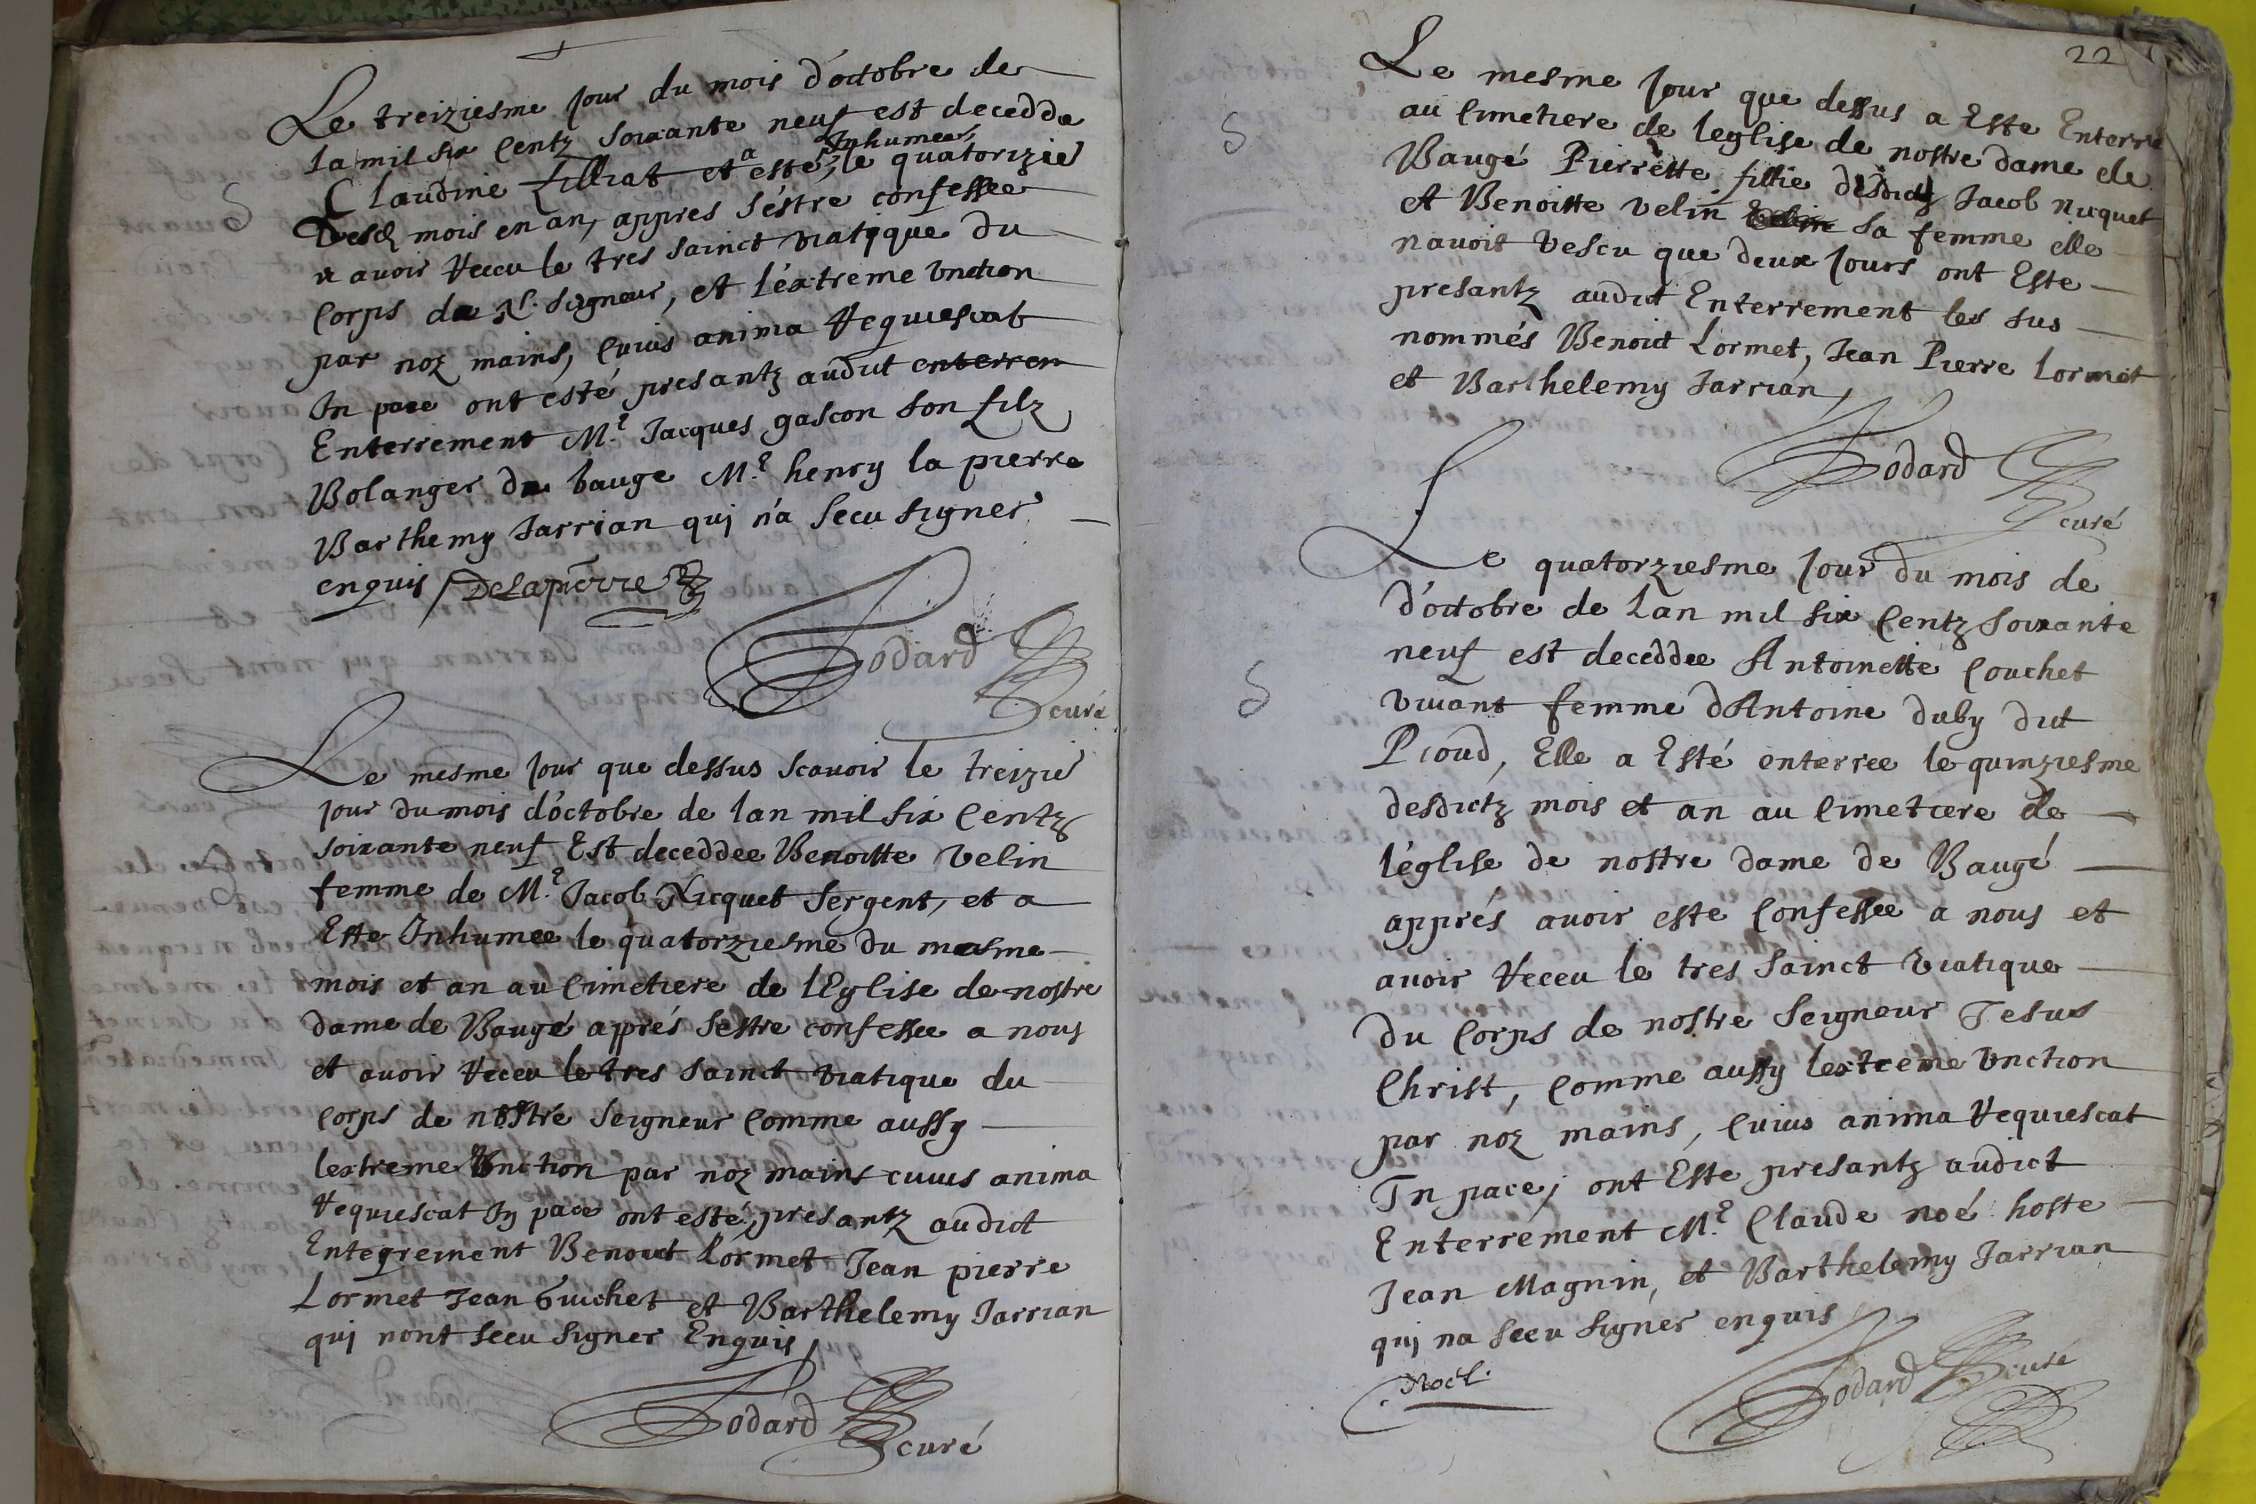 Le treiziesme Jour du mois d'octobre de
lamil six Centz soixante neuf est decedde
Claudine filliat et a esté, Inhumee, le quatorizie
Desd mois en an, appres s'éstre confessee
et avoir Receu le tres sainct viatique du
Corps de N. Seigneur, et l'éxtreme Unction
par noz mains, Cuius anima Requiescat
In pace ont esté presantz audict enterrem
Enterrement Me. Jacques gascon son filz
Bolanger de bauge Me. henry la pierre
Barthemy Jarrian qui n'a sceu signer
enquis / Delapierre
Godard
curé
Le mesme Jour que dessus scavoir le treizie
Jour du mois d'octobre de lan mil six Centz
soixante neuf Est deceddee Benoitte Velin
femme de Me. Jacob Nicquet sergent, et a
Este Inhumee le quatorziesme du mesme
mois et an au Cimetiere de lEglise de nostre
dame de Baugé apprés sestre confessee a nous
et avoir Receu le tres sainct viatique du
Corps de nostre seigneur Comme aussy
lextreme Unction par noz mains cuius anima
Requiescat In pace ont esté, presantz audict
Enterrement Benoict Lormet Jean pierre
Lormet Jean Guichet et Barthelemy Jarrian
qui nont sceu signer Enquis,
Godard
curé
22
Le mesme Jour que dessus a Este Enterre
au Cimetiere de leglise de nostre dame de
Baugé Pierrette fillie desdictz Jacob nicquet
et Benoitte velin sa femme elle
navoit vescu que deux Jours ont Este
presantz audict Enterrement les sus
nommés Benoict Lormet, Jean Pierre Lormet
et Barthelemy Jarrian,
Godard
curé
Le quatorziesme Jour du mois de
d'octobre de Lan mil six Centz soixante
neuf est deceddee Antoinette Couchet
vivant femme dAntoine duby dict
Pioud, Elle a Esté enterree le quinziesme
desdictz mois et an au Cimetiere de
léglise de nostre dame de Baugé
apprés avoir este Confessee a nous et
avoir Receu le tres sainct viatique
du Corps de nostre seigneur Jesus
Christ, Comme aussy lextreme Unction
par noz mains, Cuius anima Requiescat
In pace, ont Este presantz audict
Enterrement Me. Claude noé hoste
Jean Magnin, et Barthelemy Jarrian
qui na sceu signer enquis
Godard curé